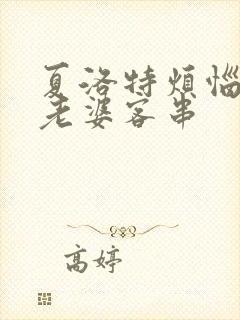 夏洛特烦恼
老婆客串
高婷